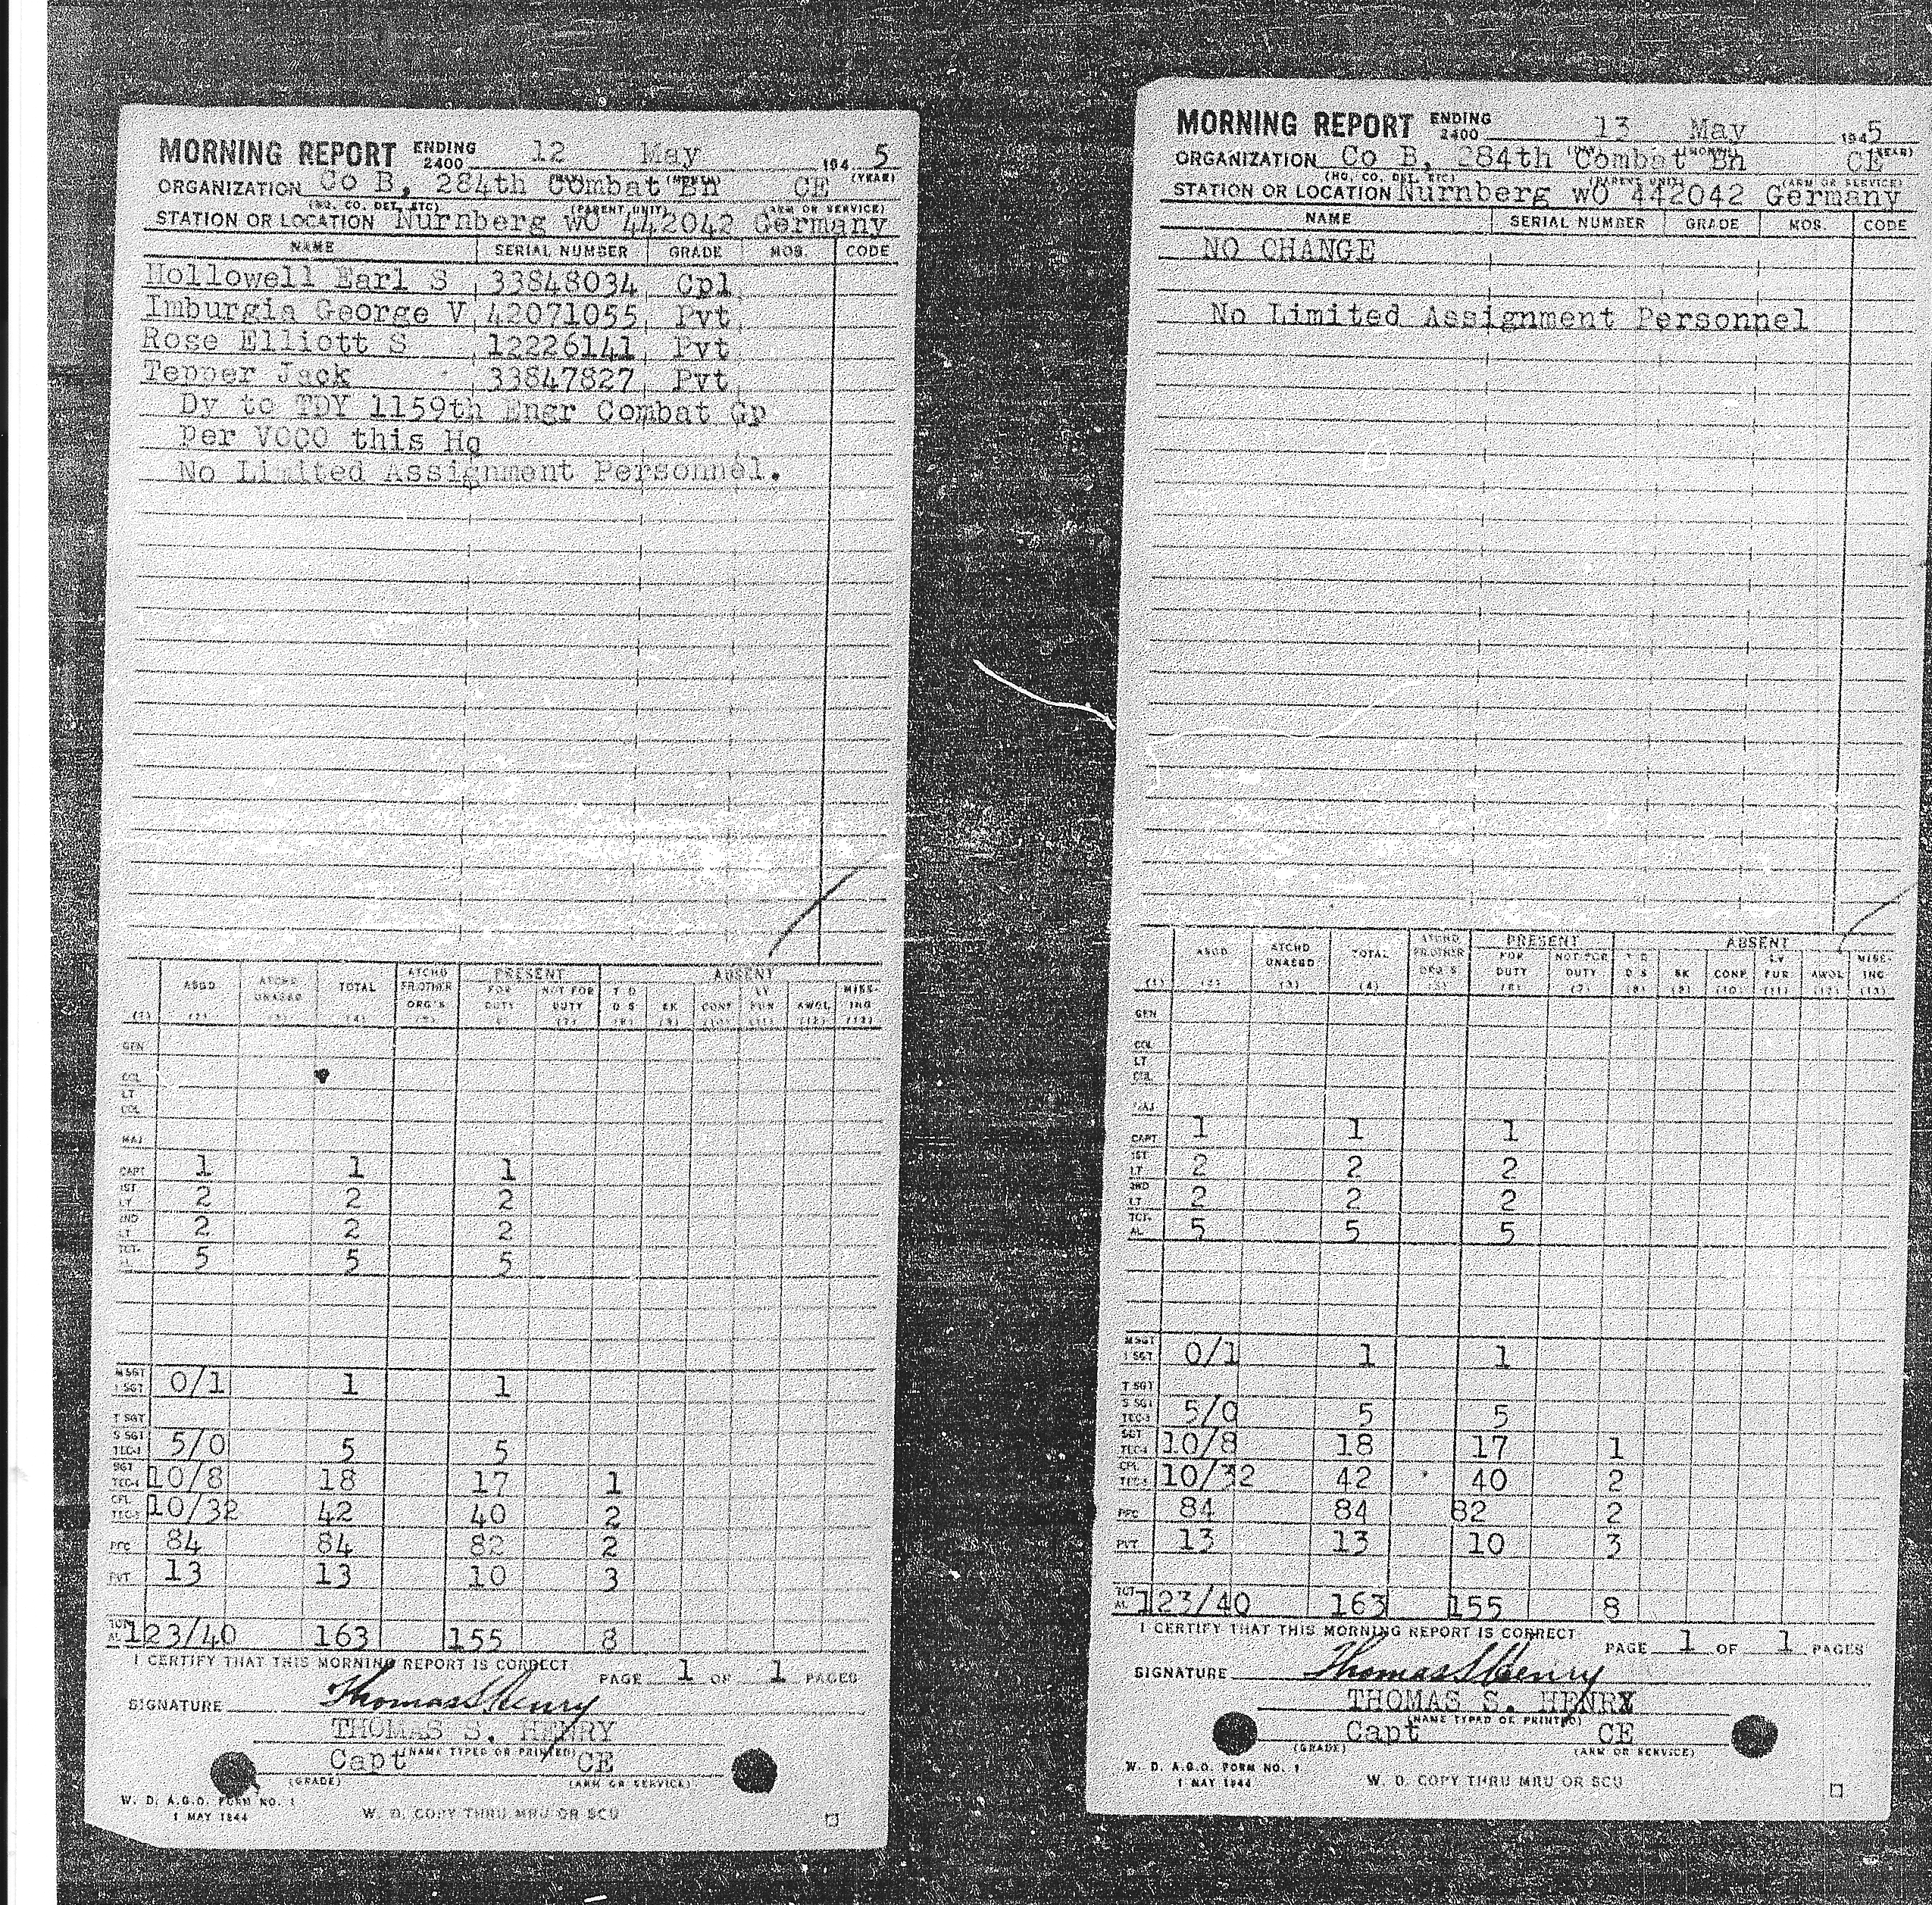 MORNING REPORT ENDING 2400 12 May 194 5
(YEAR)
ORGANIZATION Co B, 284th Combat Bn CE
(HQ. CO. DET. ETC) (PARENT UNIT) (ARM OR SERVICE)
STATION OR LOCATION Nurnberg wO 442042 Germany
NAME SERIAL NUMBER GRADE MOS. CODE
Hollowell Earl S 33848034 Cpl
Imburgia George V 42071055 Pvt
Rose Elliott S 12226141 Pvt
Tepper Jack 33847827 Pvt
Dy to TDY 1159th Engr Combat Gp
per VOCO this Hq
No Limited Assignment Personnel.
ASGD ATCHD UNASGD TOTAL ATCHD FR OTHER ORG'S PRESENT FOR DUTY NOT FOR DUTY ABSENT T D D S SK CONF LV FUR AWOL MISSING
(1) (2) (3) (4) (5) (7) (8) (9) (10) (11) (12) (13)
GEN
COL
LT COL
MAJ
CAPT 1 1 1
1ST LT 2 2 2
2ND LT 2 2 2
TOT- 5 5 5
M SGT 1 SGT 0/1 1 1
T SGT
S SGT TEC-3 5/0 5 5
SGT TEC-4 10/8 18 17 1
CPL TEC-5 10/32 42 40 2
PFC 84 84 82 2
PVT 13 13 10 3
TOT- AL 123/40 163 155 8
I CERTIFY THAT THIS MORNING REPORT IS CORRECT
PAGE 1 OF 1 PAGES
SIGNATURE Thomas S Henry
THOMAS S. HENRY
(NAME TYPED OR PRINTED)
Capt CE
(GRADE) (ARM OR SERVICE)
W. D. A.G.O. FORM NO. 1
1 MAY 1944
W. D. COPY THRU MRU OR SCU
MORNING REPORT ENDING 2400 13 May 1945
(DAY) (MONTH) (YEAR)
ORGANIZATION Co B, 284th Combat Bn CE
(HQ. CO. DET. ETC) (PARENT UNIT) (ARM OR SERVICE)
STATION OR LOCATION Nurnberg wO 442042 Germany
NAME SERIAL NUMBER GRADE MOS. CODE
NO CHANGE
No Limited Assignment Personnel
ASGD ATCHD UNASGD TOTAL ATCHD FR OTHER ORG'S PRESENT FOR DUTY NOT FOR DUTY ABSENT T D D S SK CONF LV FUR AWOL MISS- ING
(1) (2) (3) (4) (5) (6) (7) (8) (9) (10) (11) (12) (13)
GEN
COL
LT COL
MAJ
CAPT 1 1 1
1ST LT 2 2 2
2ND LT 2 2 2
TOT- AL 5 5 5
M SGT 1 SGT 0/1 1 1
T SGT
S SGT TEC-3 5/0 5 5
SGT TEC-4 10/8 18 17 1
CPL TEC-5 10/32 42 40 2
PFC 84 84 82 2
PVT 13 13 10 3
TOT- AL 123/40 163 155 8
I CERTIFY THAT THIS MORNING REPORT IS CORRECT
PAGE 1 OF 1 PAGES
SIGNATURE Thomas S Henry
THOMAS S. HENRY
(NAME TYPED OR PRINTED)
Capt CE
(GRADE) (ARM OR SERVICE)
W. D. A.G.O. FORM NO. 1
1 MAY 1944
W. D. COPY THRU MRU OR SCU